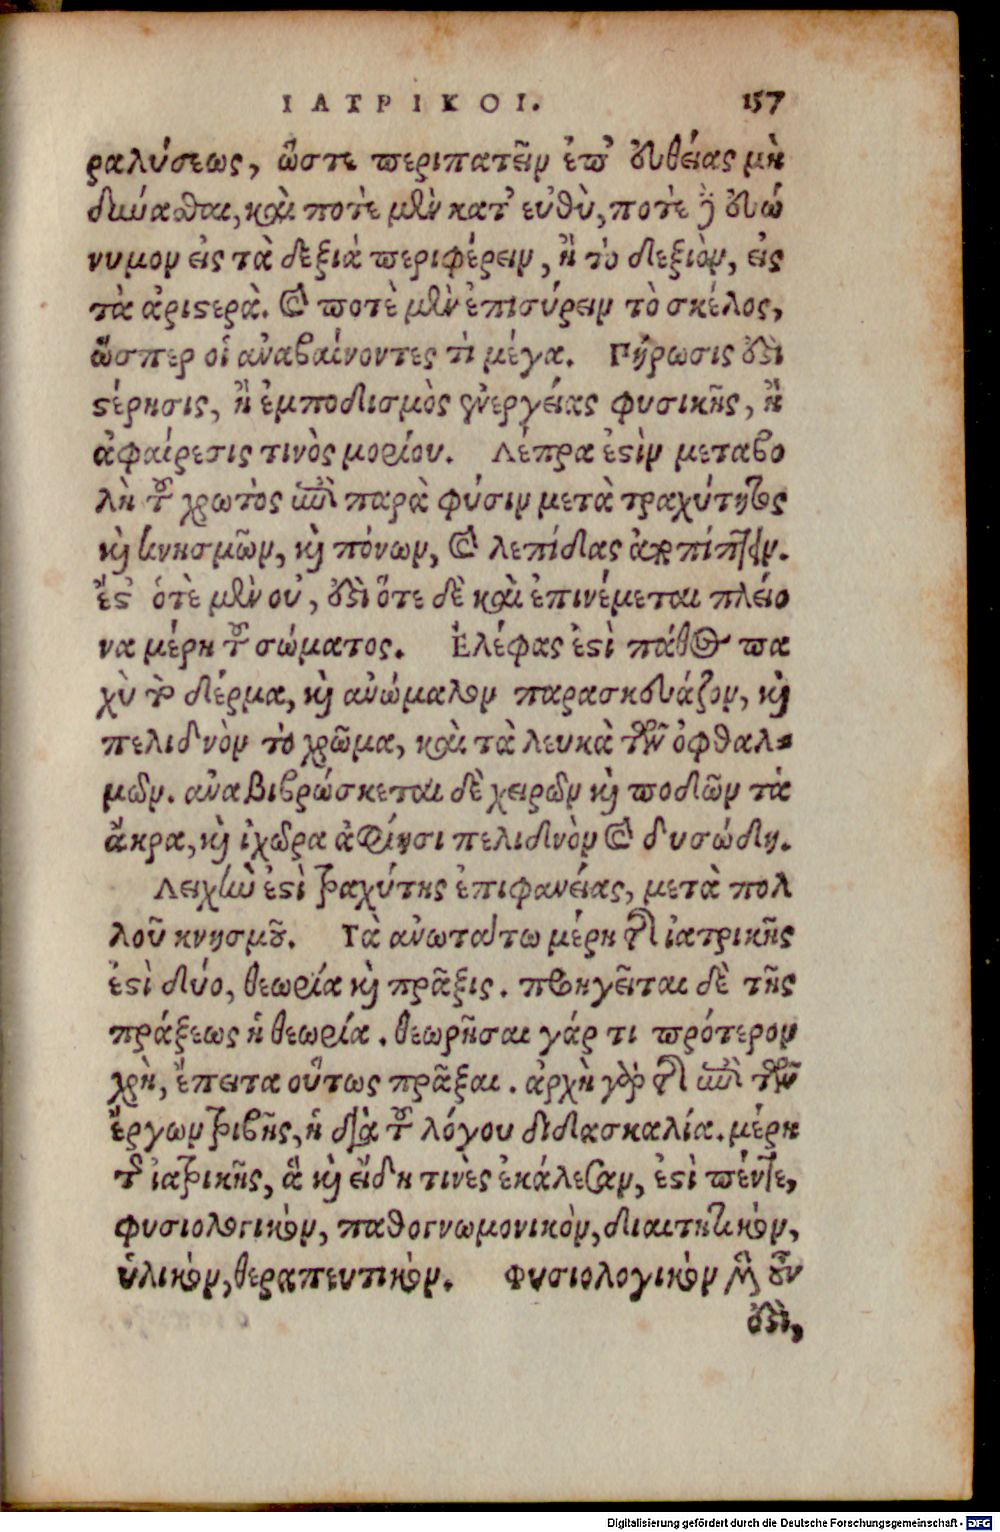 ΙΑΤΡΙΚΟΙ. 157
ραλύσεως, ὥστε περιπατεῖν ἐπ' εὐθείας μὴ
δύνασθαι, καὶ ποτὲ μὲν κατ' εὐθὺ, ποτὲ ἢ εὐώ
νυμον εἰς τὰ δεξιὰ περιφέρειν, ἢ τὸ δεξιὸν, εἰς
τὰ ἀριστερὰ. καὶ ποτὲ μὲν ἐπισύρειν τὸ σκέλος,
ὥσπερ οἱ ἀναβαίνοντες τὶ μέγα. Πήρωσις ἐστὶ
στέρησις, ἢ ἐμποδισμὸς ἐνεργείας φυσικῆς, ἢ
ἀφαίρεσις τινὸς μορίου. Λέπρα ἐστὶν μεταβο
λὴ τοῦ χρωτὸς ἐπὶ παρὰ φύσιν μετὰ τραχύτητος
καὶ κνησμῶν, καὶ πόνων, καὶ λεπίδας ἀποπίπτειν.
ἔστ' ὁτὲ μὲν οὐ, ἐστὶ ὅτε δὲ καὶ ἐπινέμεται πλείο
να μέρη τοῦ σώματος. Ἐλέφας ἐστὶ πάθος πα
χὺ τὸ δέρμα, καὶ ἀνώμαλον παρασκευάζον, καὶ
πελιδνὸν τὸ χρῶμα, καὶ τὰ λευκὰ τῶν ὀφθαλ-
μῶν. ἀναβιβρώσκεται δὲ χειρῶν καὶ ποδῶν τὰ
ἄκρα, καὶ ἰχῶρα ἀφίησι πελιδνὸν καὶ δυσώδη.
Λειχὴν ἐστὶ τραχύτης ἐπιφανείας, μετὰ πολ
λοῦ κνησμοῦ. Τὰ ἀνωτάτω μέρη τῆς ἰατρικῆς
ἐστὶ δύο, θεωρία καὶ πρᾶξις. προηγεῖται δὲ τῆς
πράξεως ἡ θεωρία. θεωρῆσαι γάρ τι πρότερον
χρὴ, ἔπειτα οὕτως πρᾶξαι. ἀρχὴ γὰρ τῆς ἐπὶ τῶν
ἔργων τριβῆς, ἡ διὰ τοῦ λόγου διδασκαλία. μέρη
τῆς ἰατρικῆς, ἃ καὶ εἴδη τινὲς ἐκάλεσαν, ἐστὶ πέντε,
φυσιολογικὸν, παθογνωμονικὸν, διαιτητικὸν,
ὑλικὸν, θεραπευτικὸν. Φυσιολογικὸν μὲν οὖν
ἐστὶ,
Digitalisierung gefördert durch die Deutsche Forschungsgemeinschaft - DFG